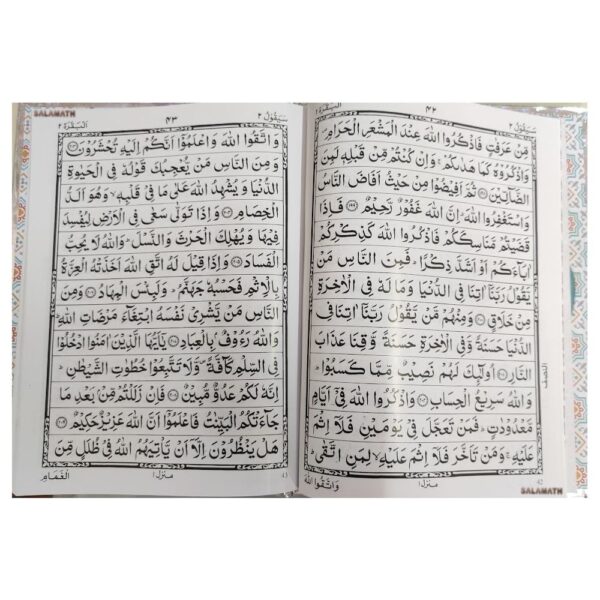 سَيَقُوْلُ ٢ ٤٢ اَلْبَقَرَة ٢
مِّنْ عَرَفٰتٍ فَاذْكُرُوا اللّٰهَ عِنْدَ الْمَشْعَرِ الْحَرَامِ
وَاذْكُرُوْهُ كَمَا هَدٰىكُمْ ۚ وَاِنْ كُنْتُمْ مِّنْ قَبْلِهٖ لَمِنَ
الضَّآلِّيْنَ ﴿۱۹۸﴾ ثُمَّ اَفِيْضُوْا مِنْ حَيْثُ اَفَاضَ النَّاسُ
وَاسْتَغْفِرُوا اللّٰهَ ؕ اِنَّ اللّٰهَ غَفُوْرٌ رَّحِيْمٌ ﴿۱۹۹﴾ فَاِذَا
قَضَيْتُمْ مَّنَاسِكَكُمْ فَاذْكُرُوا اللّٰهَ كَذِكْرِكُمْ
اٰبَآءَكُمْ اَوْ اَشَدَّ ذِكْرًا ؕ فَمِنَ النَّاسِ مَنْ
يَّقُوْلُ رَبَّنَاۤ اٰتِنَا فِى الدُّنْيَا وَمَا لَهٗ فِى الْاٰخِرَةِ
مِنْ خَلَاقٍ ﴿۲۰۰﴾ وَمِنْهُمْ مَّنْ يَّقُوْلُ رَبَّنَاۤ اٰتِنَا فِى
الدُّنْيَا حَسَنَةً وَّفِى الْاٰخِرَةِ حَسَنَةً وَّقِنَا عَذَابَ
النَّارِ ﴿۲۰۱﴾ اُولٰٓئِكَ لَهُمْ نَصِيْبٌ مِّمَّا كَسَبُوْا ؕ
وَاللّٰهُ سَرِيْعُ الْحِسَابِ ﴿۲۰۲﴾ وَاذْكُرُوا اللّٰهَ فِىْۤ اَيَّامٍ
مَّعْدُوْدٰتٍ ؕ فَمَنْ تَعَجَّلَ فِىْ يَوْمَيْنِ فَلَاۤ اِثْمَ
عَلَيْهِ ۚ وَمَنْ تَاَخَّرَ فَلَاۤ اِثْمَ عَلَيْهِ ۙ لِمَنِ اتَّقٰى ؕ
النصف
وَاتَّقُوا اللّٰهَ
منزل ١
42
SALAMATH
SALAMATH
سَيَقُوْلُ ٢ ٤٣ اَلْبَقَرَة ٢
وَاتَّقُوا اللّٰهَ وَاعْلَمُوْۤا اَنَّكُمْ اِلَيْهِ تُحْشَرُوْنَ ﴿۲۰۳﴾
وَمِنَ النَّاسِ مَنْ يُّعْجِبُكَ قَوْلُهٗ فِى الْحَيٰوةِ
الدُّنْيَا وَيُشْهِدُ اللّٰهَ عَلٰى مَا فِىْ قَلْبِهٖ ۙ وَهُوَ اَلَدُّ
الْخِصَامِ ﴿۲۰۴﴾ وَاِذَا تَوَلّٰى سَعٰى فِى الْاَرْضِ لِيُفْسِدَ
فِيْهَا وَيُهْلِكَ الْحَرْثَ وَالنَّسْلَ ؕ وَاللّٰهُ لَا يُحِبُّ
الْفَسَادَ ﴿۲۰۵﴾ وَاِذَا قِيْلَ لَهُ اتَّقِ اللّٰهَ اَخَذَتْهُ الْعِزَّةُ
بِالْاِثْمِ فَحَسْبُهٗ جَهَنَّمُ ؕ وَلَبِئْسَ الْمِهَادُ ﴿۲۰۶﴾ وَمِنَ
النَّاسِ مَنْ يَّشْرِىْ نَفْسَهُ ابْتِغَآءَ مَرْضَاتِ اللّٰهِ ؕ
وَاللّٰهُ رَءُوْفٌۢ بِالْعِبَادِ ﴿۲۰۷﴾ يٰۤاَيُّهَا الَّذِيْنَ اٰمَنُوا ادْخُلُوْا
فِى السِّلْمِ كَآفَّةً ۪ وَلَا تَتَّبِعُوْا خُطُوٰتِ الشَّيْطٰنِ ؕ
اِنَّهٗ لَكُمْ عَدُوٌّ مُّبِيْنٌ ﴿۲۰۸﴾ فَاِنْ زَلَلْتُمْ مِّنْۢ بَعْدِ مَا
جَآءَتْكُمُ الْبَيِّنٰتُ فَاعْلَمُوْۤا اَنَّ اللّٰهَ عَزِيْزٌ حَكِيْمٌ ﴿۲۰۹﴾
هَلْ يَنْظُرُوْنَ اِلَّاۤ اَنْ يَّاْتِيَهُمُ اللّٰهُ فِىْ ظُلَلٍ مِّنَ
الْغَمَامِ
منزل ١
43